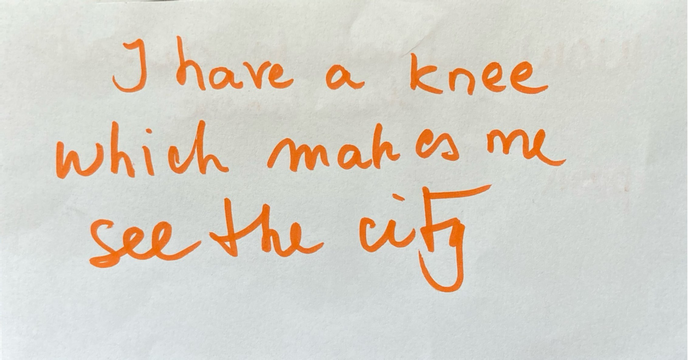 I have a knee
which makes me
see the city